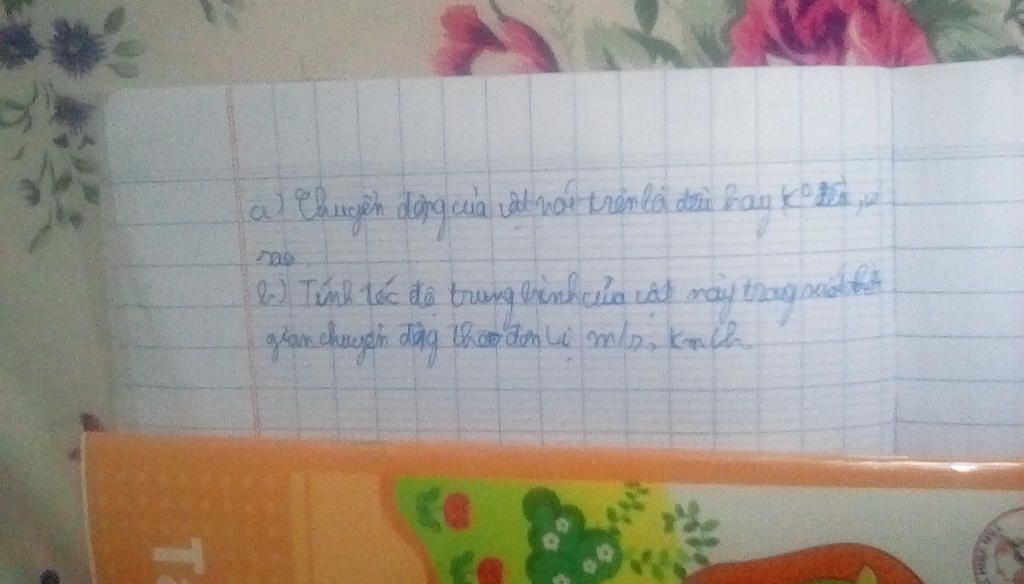 a) Chuyển động của vật nói trên là đều hay k° đều, vì
sao
b) Tính tốc độ trung bình của vật này trong suốt thời
gian chuyển động theo đơn vị m/s, km/h.
T